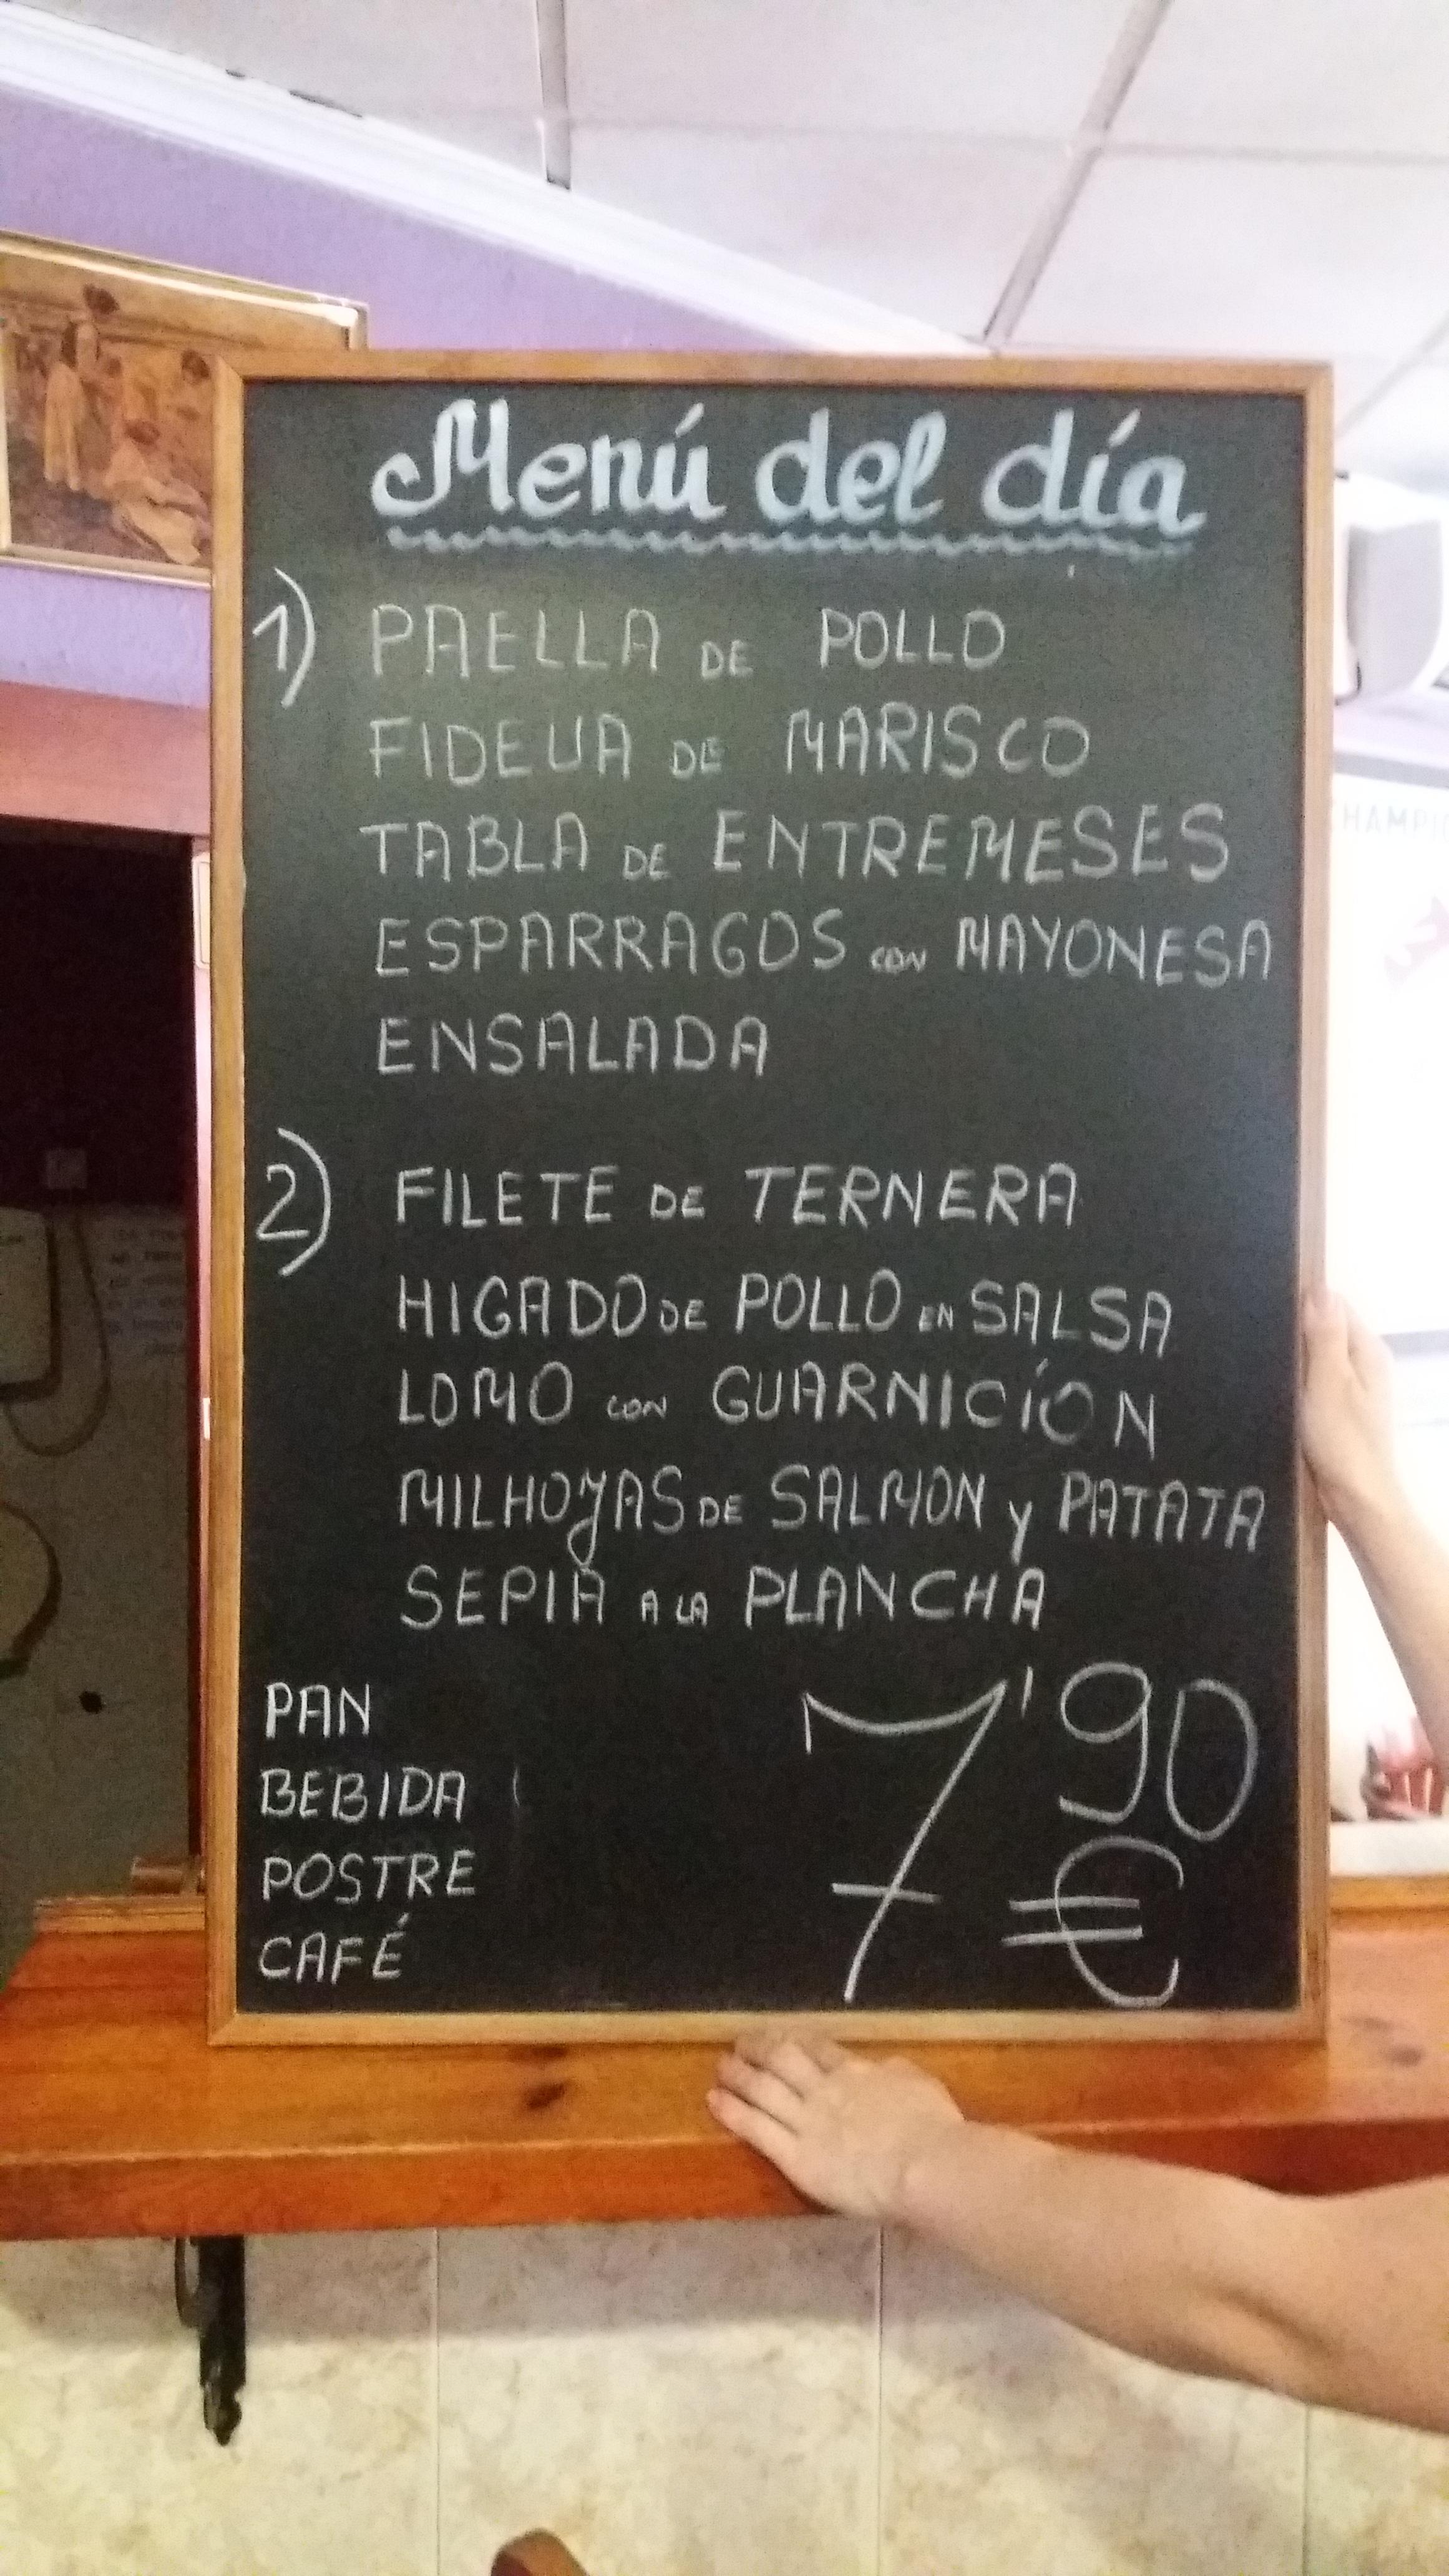 Menú del día
1) PAELLA DE POLLO
FIDEUA DE MARISCO
TABLA DE ENTREMESES
ESPARRAGOS CON MAYONESA
ENSALADA
2) FILETE DE TERNERA
HIGADO DE POLLO EN SALSA
LOMO CON GUARNICÍON
MILHOJAS DE SALMON y PATATA
SEPIA A LA PLANCHA
PAN
BEBIDA
POSTRE
CAFÉ
7'90
€
HAMPI